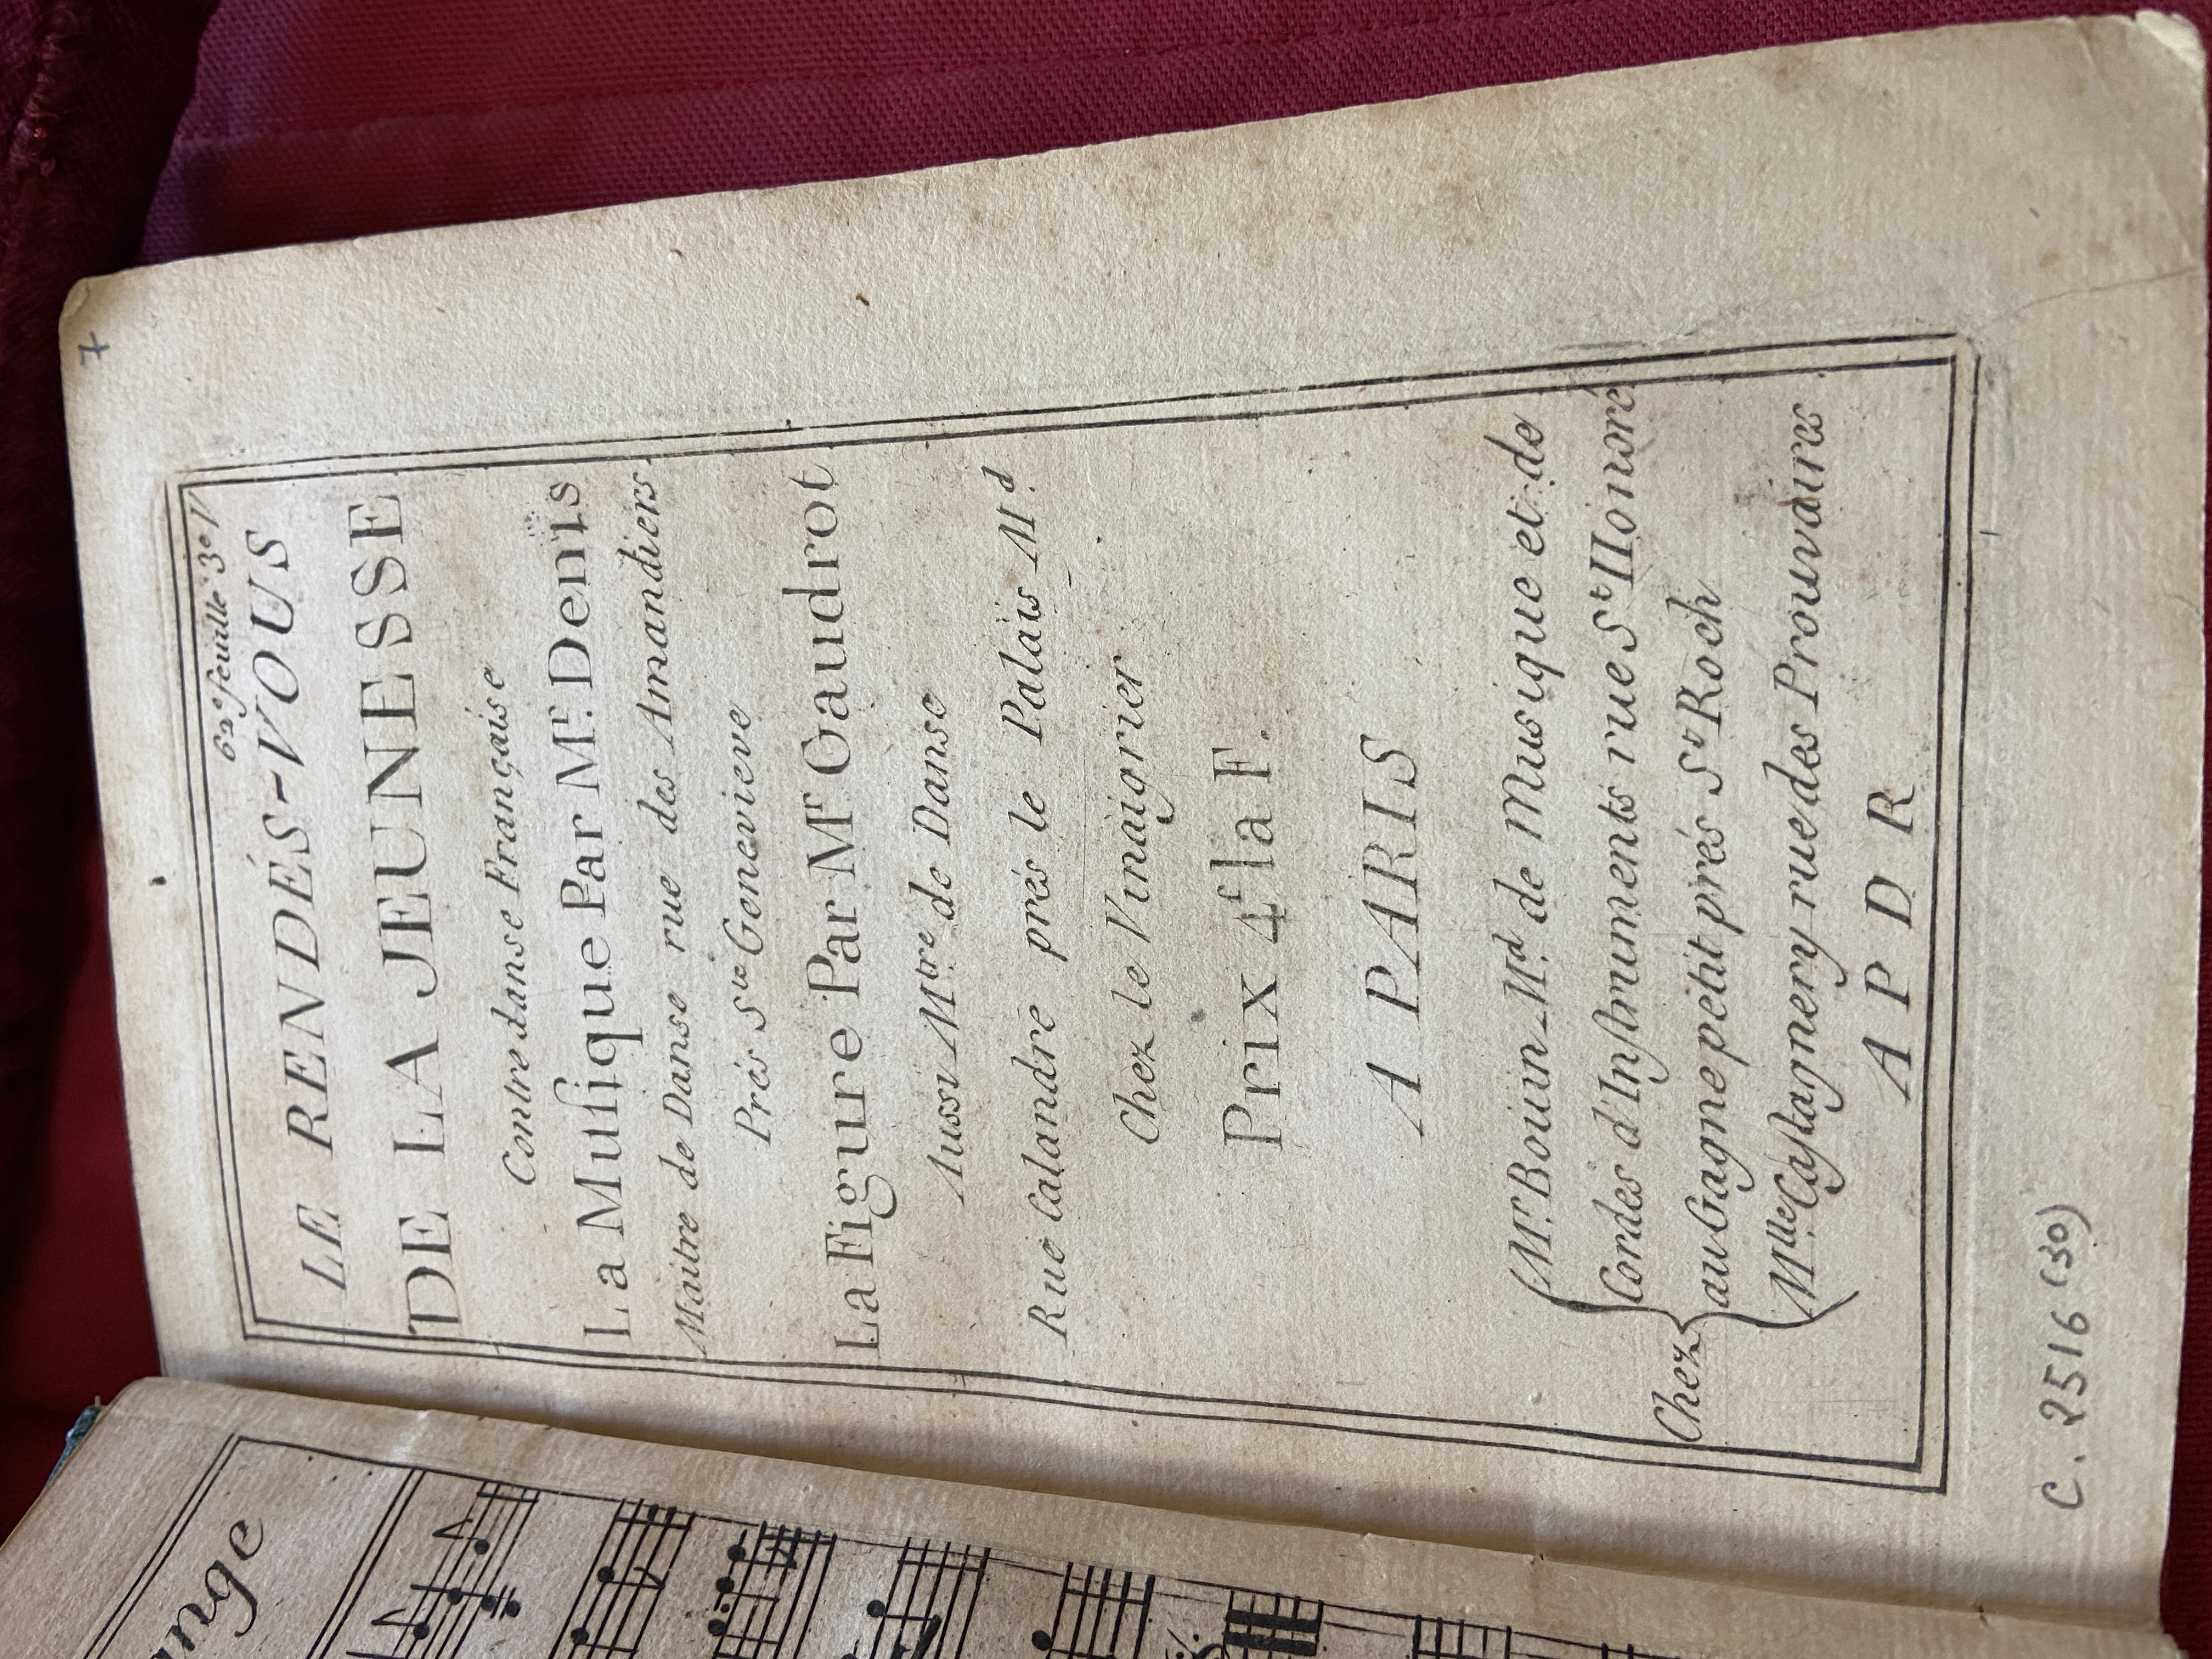 7
62e feuille 3e V
LE RENDÉS-VOUS
DE LA JEUNESSE
Contre danse Française
La Musique Par Mr. Denis
Maitre de Danse rue des Amandiers
Prés Ste Genevieve
La Figure Par Mr. Gaudrot
Aussi Mtre de Danse
Rue Calandre prés le Palais Md.
Chez le Vinaigrier
Prix 4f la F.
A PARIS
Chez
Mr. Bouin Md. de Musique et de
Cordes d'Instruments rue St Honoré
au Gagne petit prés St Roch
Mlle Castagnery rue des Prouvaires
A P D R
C. 2516 (30)
ange